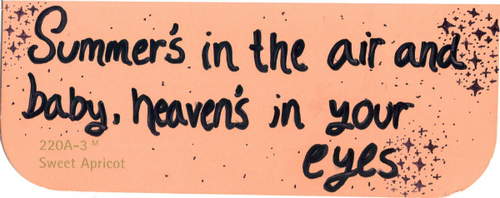 Summer's in the air and
baby, heaven's in your
220A-3 M
eyes
Sweet Apricot